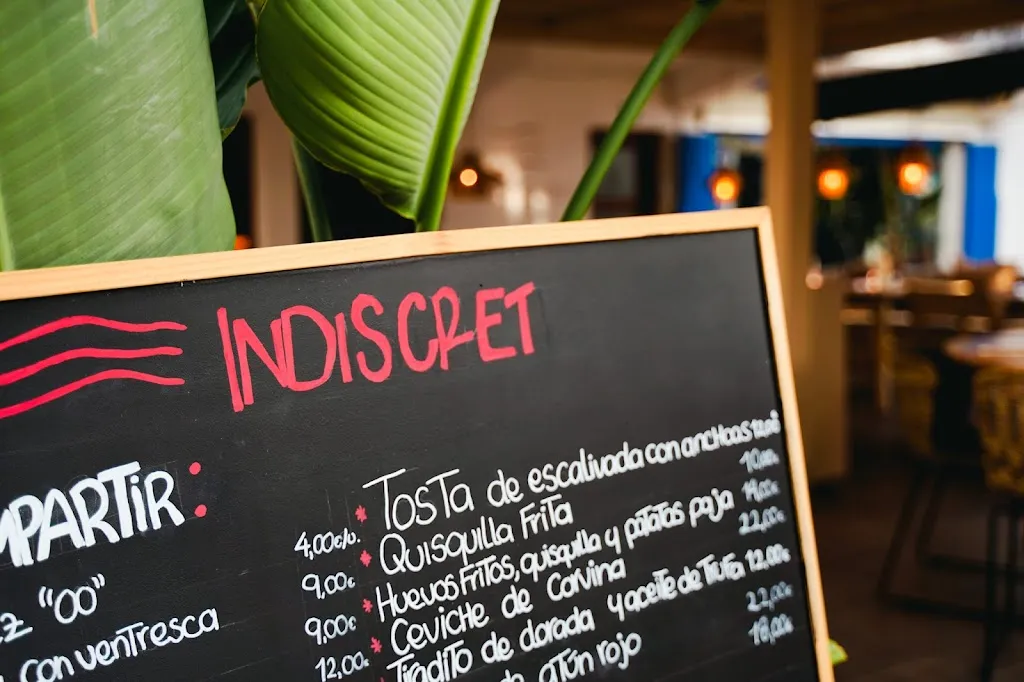 INDISCRET
MPARTIR:
"00"
con ventresca
4,00€/u.
9,00€
9,00€
12,00€
* Tosta de escalivada con anchoas
* Quisquilla Frita
* Huevos Fritos, quisquilla y patatas paja
* Ceviche de Corvina
Tiradito de dorada y aceite de Trufa 12,00€
atún rojo
22,00€
22,00€
18,00€